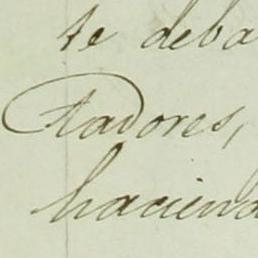 te deba
tadores,
haciend